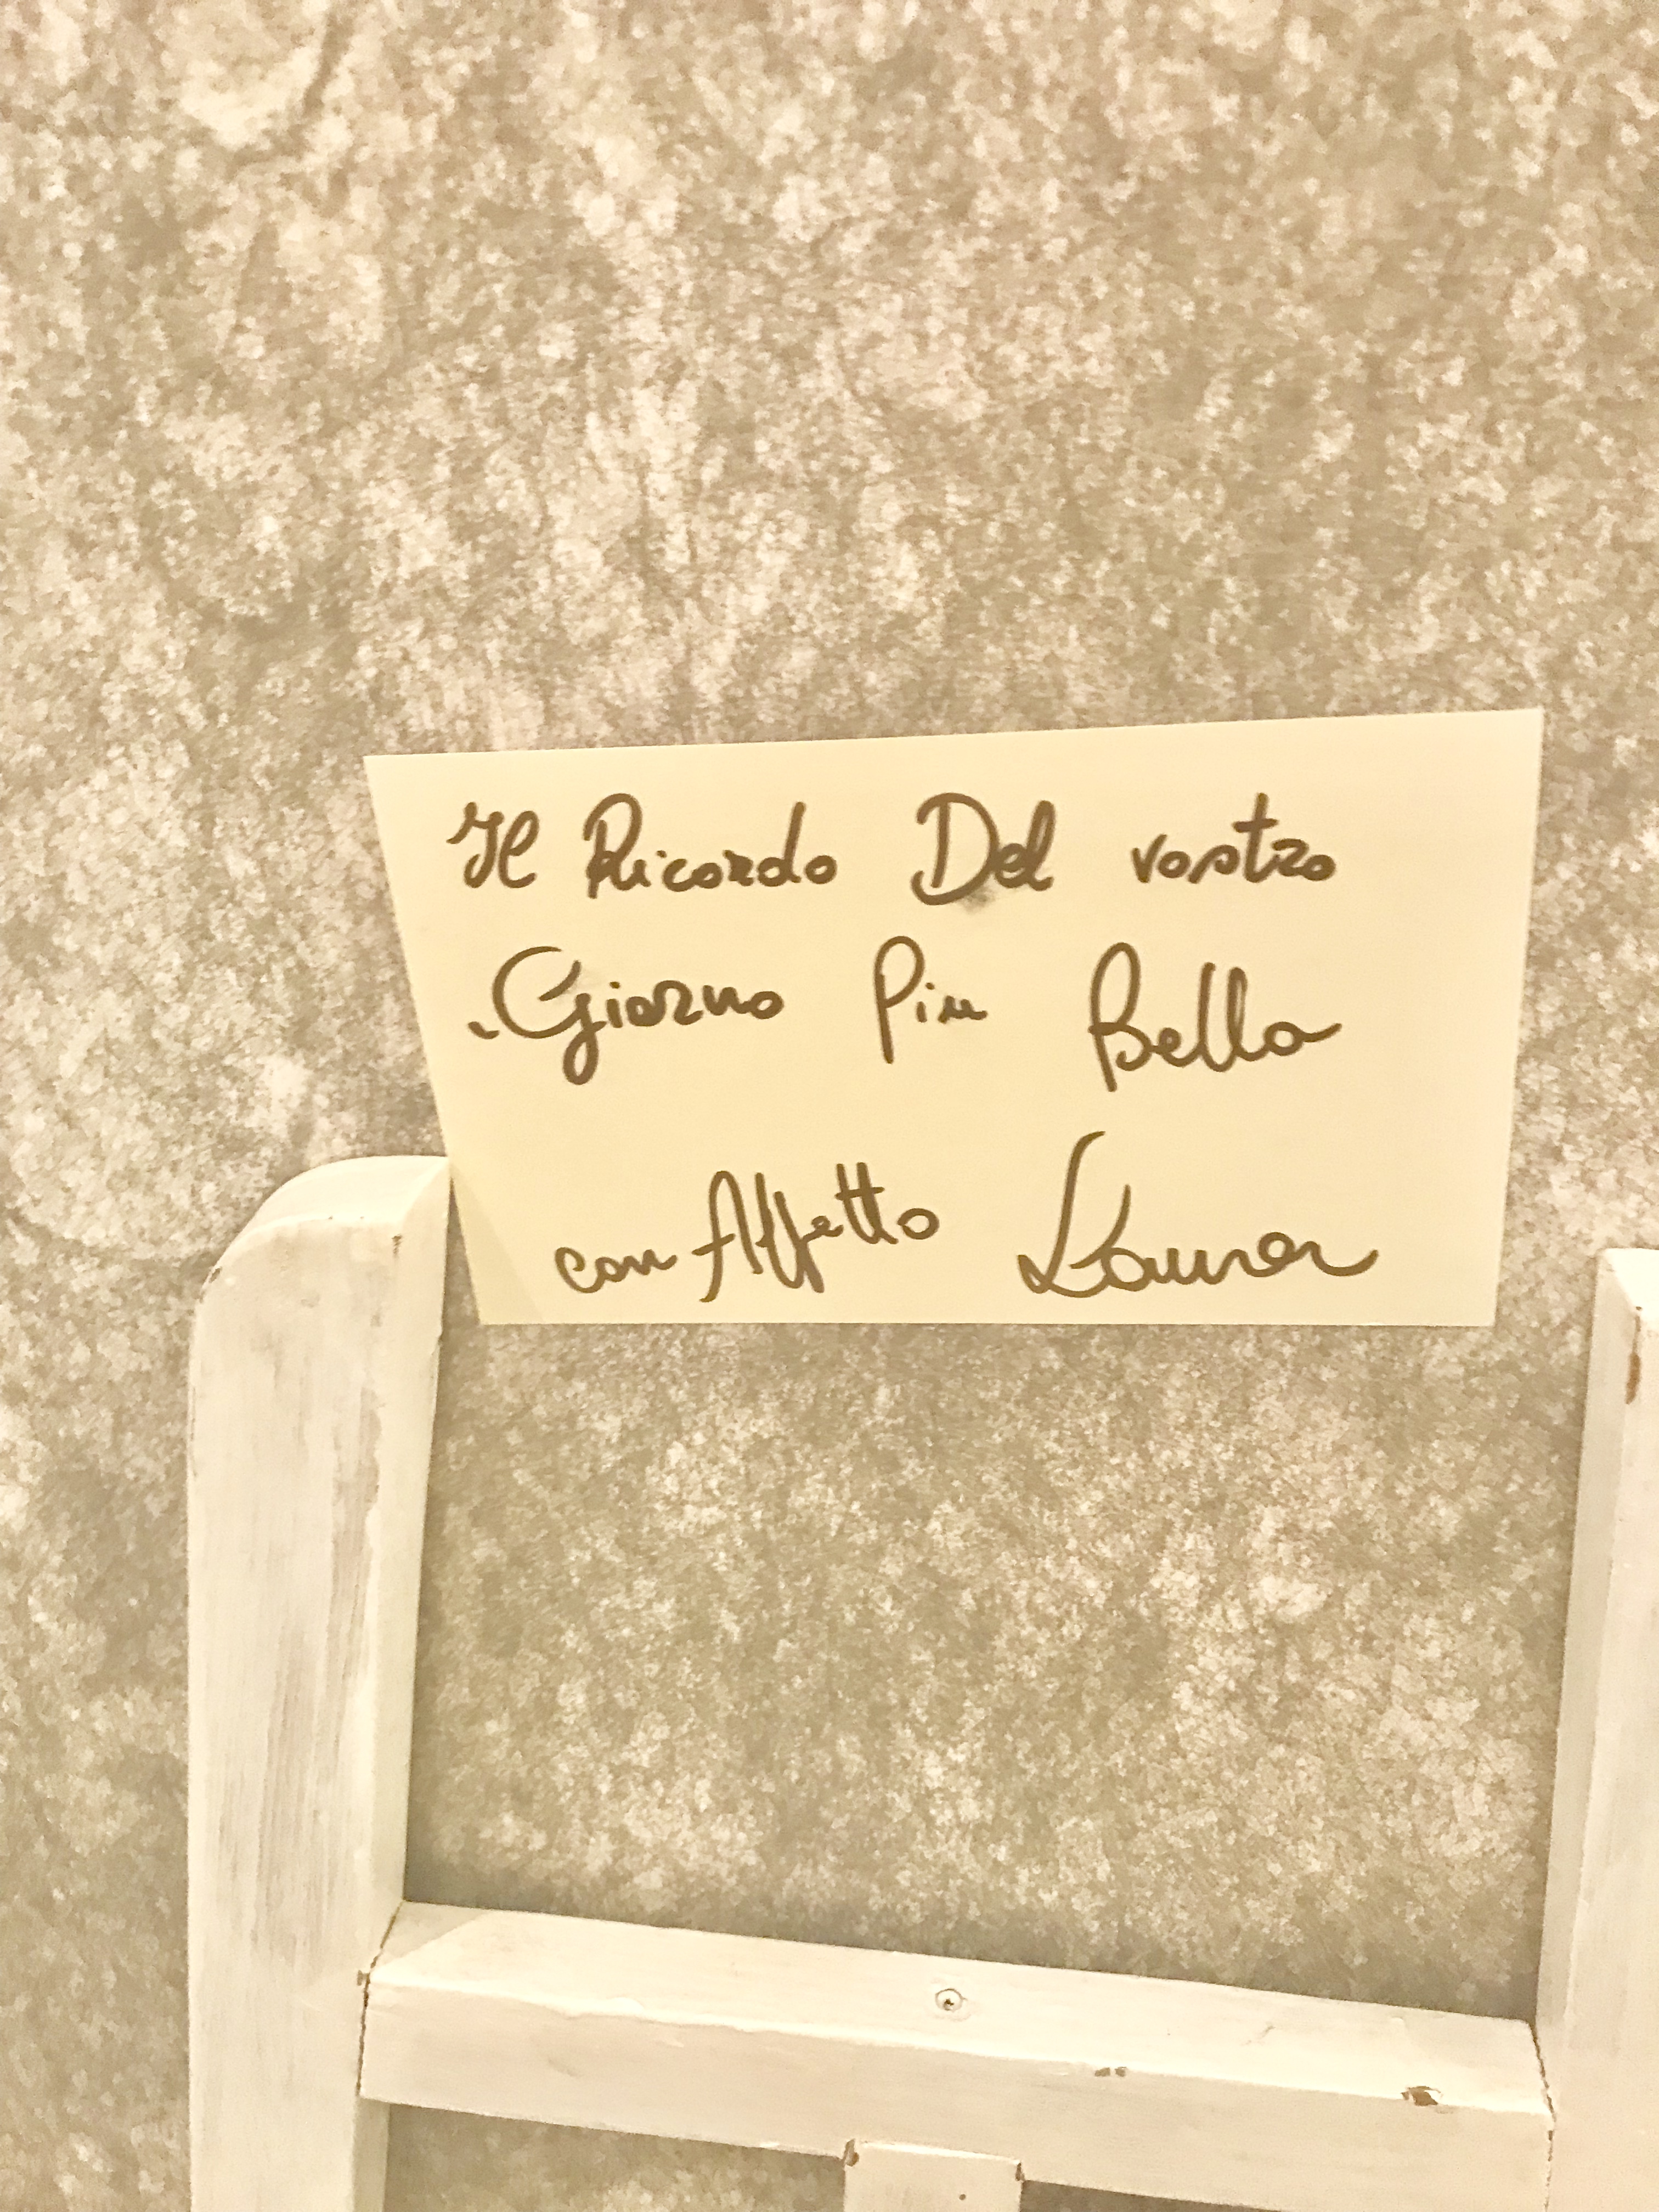 Il Ricordo Del vostro
Giorno Piu Bello
con Affetto Laura